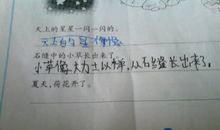 天上的星星一闪一闪的。
天上的星像
石缝中的小草长出来了。
小草像大力士以乎,从石缝长出来了。
夏天,荷花开了。